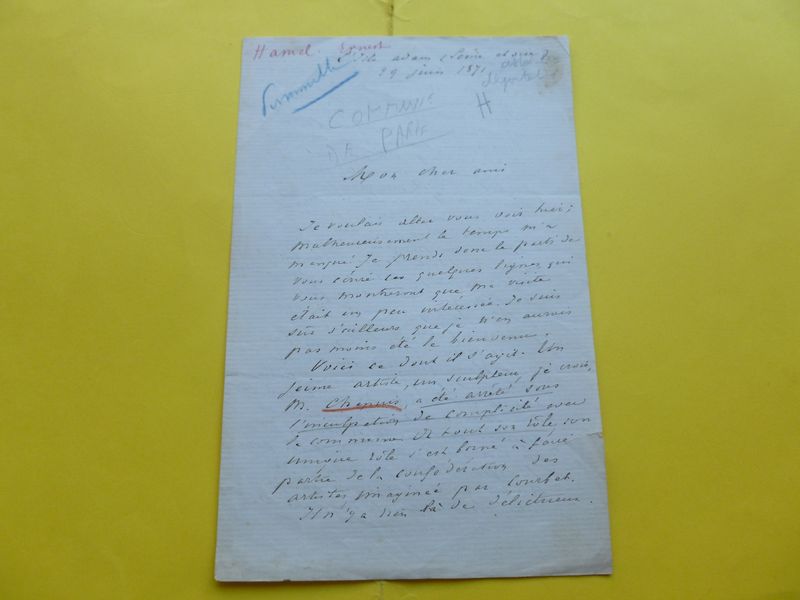 Hamel. Ernest
l'isle adam (Seine et oise)
29 juin 1871
COMMUNE
DE PARIS
H
Mon cher ami
Je voulais aller vous voir hier;
malheureusement le temps m'a
manqué. Je prends donc le parti de
vous écrire ces quelques lignes qui
vous montreront que ma visite
était un peu intéressée. Je suis
sûr d'ailleurs que je n'en aurais
pas moins été le bienvenu.
Voici ce dont il s'agit. Un
jeune artiste, un sculpteur, je crois,
M. Chapuis, a été arrêté sous
l'inculpation de complicité avec
la commune. Or tout son rôle son
unique rôle s'est borné à faire
partie de la confédération des
artistes imaginée par Courbet.
Il n'y a rien là de délictueux.